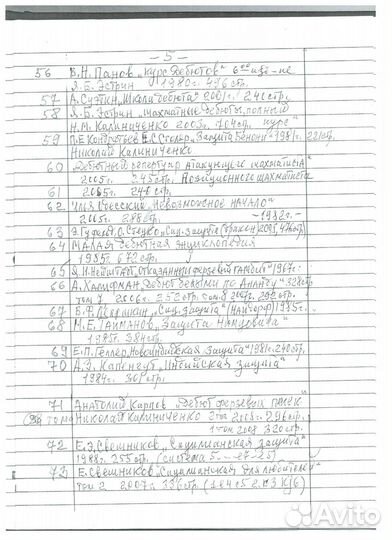 - 5 -
56 В.Н. Панов "Курс Дебютов" 6ое изд-ие
Я.Б. Эстрин 1980г. 496 стр.
57 А. Суэтин "Школа дебюта" 2001г. 240 стр.
58 Я.Б. Эстрин "Шахматные дебюты, полный
Н.М. Калиниченко 2003г. 704 стр. курс"
59 П.Е. Кондратьев Е.С. Столяр "Защита Бенони" 1981г. 221 стр.
Николай Калиниченко
60 Дебютный репертуар атакующего шахматиста"
2005г. 245 стр. Позиционного шахматиста
61 2005г. 240 стр.
62 Илья Одесский "Невозможное начало"
2005г. 288 стр. - 1982г. -
63 Э. Гуфельд О. Стецко "Сиц. защита (дракон) 2001, 476 стр.
64 МАЛАЯ дебютная энциклопедия
1985г. 672 стр.
65 Я.И. Нейштадт "Отказанный ферзевый гамбит" 1967г.
66 А. Халифман "Дебют белыми по Ананду" 328 стр.
том 7 2006г. 252 стр. том 8 2007г. 292 стр.
67 "Сиц. защита" (Найдорф) 1985г.
68 М.Е. Тайманов "Защита Нимцовича"
1985г. 384 стр.
69 Е.П. Геллер "Новоиндийская защита" 1981г. 240 стр.
70 А.З. Капенгут "Индийская защита"
1984г. 301 стр.
71 Анатолий Карпов "Дебют ферзевых пешек"
тома Николай Калиниченко 2 том 2008г. 296 стр.
1 том 2008 320 стр.
72 Е.Э. Свешников "Сицилианская защита"
1988г. 255 стр. (система 5. -e7-e5)
73 Е. Свешников "Сицилианская для любителей"
том 2 2007г. 336 стр (1.e4 c5 2.♘f3 Кc6)
Avito